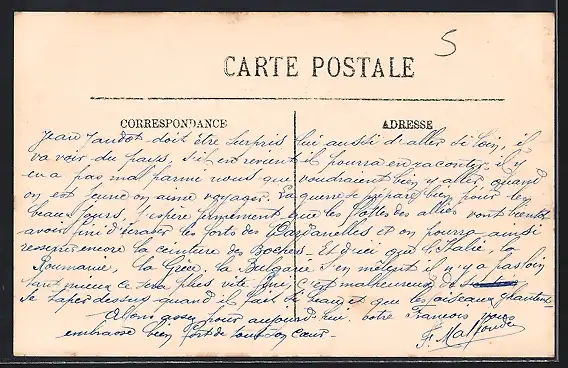 5
CARTE POSTALE
CORRESPONDANCE ADRESSE
Jean Jaudot doit être surpris lui aussi d'aller si loin, il
va voir du pays, s'il en revient il pourra en raconter, il y
en a pas mal parmi nous que voudraient bien y aller, quand
on est jeune on aime voyager. La guerre se prépare bien pour les
beaux jours, j'espère fermement que les flottes des alliés vont bientôt
avoir fini d'écraser les forts des Dardanelles et on pourra ainsi
resserrer encore la ceinture des Boches. Et d'ici que l'Italie, la
Roumanie, la Grèce, la Bulgarie s'en mêlent il n'y a pas loin
tant mieux ce sera plus vite fini, c'est malheureux de
se taper dessus quand il fait si beau et que les oiseaux chantent
Allons assez pour aujourd'hui, votre François vous
embrasse bien fort de tout son cœur.